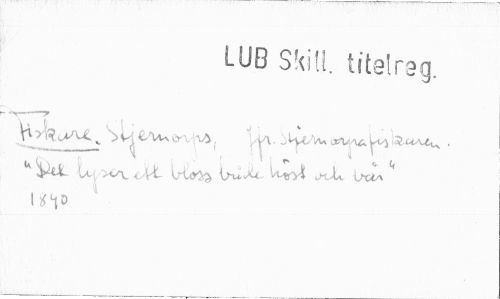 LUB Skill. titelreg.
Fiskare. Stjernorps, Jfr. Stjernorpafiskaren.
"Det lyser ett bloss både höst och vår"
1840